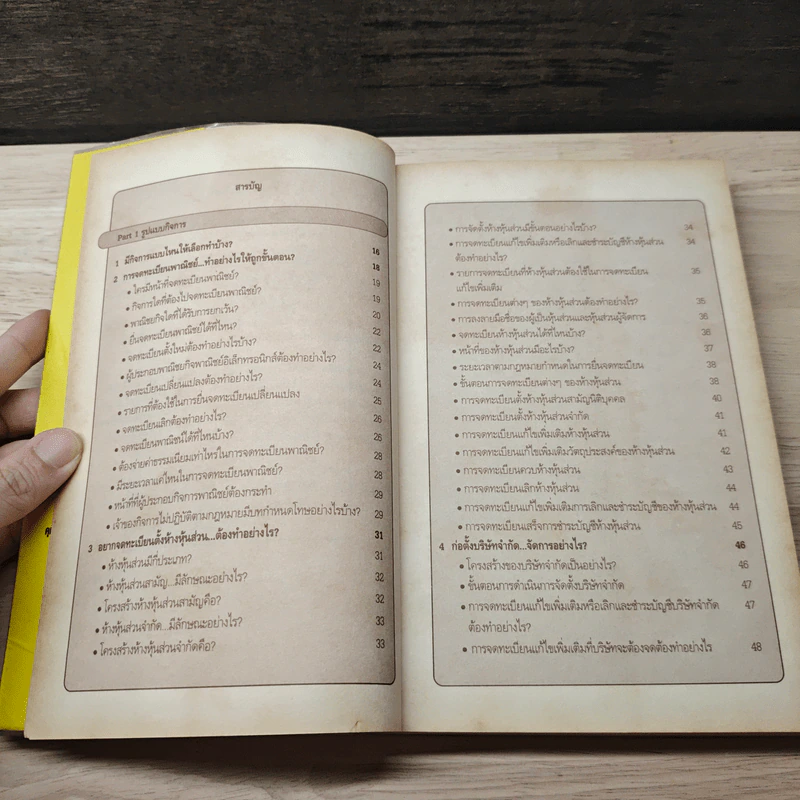 สารบัญ
Part 1 รูปแบบกิจการ
1 มีกิจการแบบไหนให้เลือกทำบ้าง? 16
2 การจดทะเบียนพาณิชย์...ทำอย่างไรให้ถูกขั้นตอน? 18
• ใครมีหน้าที่จดทะเบียนพาณิชย์? 19
• กิจการใดที่ต้องไปจดทะเบียนพาณิชย์? 19
• พาณิชยกิจใดที่ได้รับการยกเว้น? 20
• ยื่นจดทะเบียนพาณิชย์ได้ที่ไหน? 22
• จดทะเบียนตั้งใหม่ต้องทำอย่างไรบ้าง? 22
• ผู้ประกอบพาณิชยกิจพาณิชย์อิเล็กทรอนิกส์ต้องทำอย่างไร? 24
• จดทะเบียนเปลี่ยนแปลงต้องทำอย่างไร? 24
• รายการที่ต้องใช้ในการยื่นจดทะเบียนเปลี่ยนแปลง 25
• จดทะเบียนเลิกต้องทำอย่างไร? 26
• จดทะเบียนพาณิชน์ได้ที่ไหนบ้าง? 26
• ต้องจ่ายค่าธรรมเนียมเท่าไหร่ในการจดทะเบียนพาณิชย์? 28
• มีระยะเวลาแค่ไหนในการจดทะเบียนพาณิชย์? 28
• หน้าที่ที่ผู้ประกอบกิจการพาณิชย์ต้องกระทำ 29
• เจ้าของกิจการไม่ปฏิบัติตามกฎหมายมีบทกำหนดโทษอย่างไรบ้าง? 29
3 อยากจดทะเบียนตั้งห้างหุ้นส่วน...ต้องทำอย่างไร? 31
• ห้างหุ้นส่วนมีกี่ประเภท? 31
• ห้างหุ้นส่วนสามัญ...มีลักษณะอย่างไร? 32
• โครงสร้างห้างหุ้นส่วนสามัญคือ? 32
• ห้างหุ้นส่วนจำกัด...มีลักษณะอย่างไร? 33
• โครงสร้างห้างหุ้นส่วนจำกัดคือ? 33
• การจัดตั้งห้างหุ้นส่วนมีขั้นตอนอย่างไรบ้าง? 34
• การจดทะเบียนแก้ไขเพิ่มเติมหรือเลิกและชำระบัญชีห้างหุ้นส่วน 34
ต้องทำอย่างไร?
• รายการจดทะเบียนที่ห้างหุ้นส่วนต้องใช้ในการจดทะเบียน 35
แก้ไขเพิ่มเติม
• การจดทะเบียนต่างๆ ของห้างหุ้นส่วนต้องทำอย่างไร? 35
• การลงลายมือชื่อของผู้เป็นหุ้นส่วนและหุ้นส่วนผู้จัดการ 36
• จดทะเบียนห้างหุ้นส่วนได้ที่ไหนบ้าง? 36
• หน้าที่ของห้างหุ้นส่วนมีอะไรบ้าง? 37
• ระยะเวลาตามกฎหมายกำหนดในการยื่นจดทะเบียน 38
• ขั้นตอนการจดทะเบียนต่างๆ ของห้างหุ้นส่วน 38
• การจดทะเบียนตั้งห้างหุ้นส่วนสามัญนิติบุคคล 40
• การจดทะเบียนตั้งห้างหุ้นส่วนจำกัด 41
• การจดทะเบียนแก้ไขเพิ่มเติมห้างหุ้นส่วน 41
• การจดทะเบียนแก้ไขเพิ่มเติมวัตถุประสงค์ของห้างหุ้นส่วน 42
• การจดทะเบียนควบห้างหุ้นส่วน 43
• การจดทะเบียนเลิกห้างหุ้นส่วน 44
• การจดทะเบียนแก้ไขเพิ่มเติมการเลิกและชำระบัญชีของห้างหุ้นส่วน 44
• การจดทะเบียนเสร็จการชำระบัญชีห้างหุ้นส่วน 45
4 ก่อตั้งบริษัทจำกัด...จัดการอย่างไร? 46
• โครงสร้างของบริษัทจำกัดเป็นอย่างไร? 46
• ขั้นตอนการดำเนินการจัดตั้งบริษัทจำกัด 47
• การจดทะเบียนแก้ไขเพิ่มเติมหรือเลิกและชำระบัญชีบริษัทจำกัด 47
ต้องทำอย่างไร?
• การจดทะเบียนแก้ไขเพิ่มเติมที่บริษัทจะต้องจดต้องทำอย่างไร 48